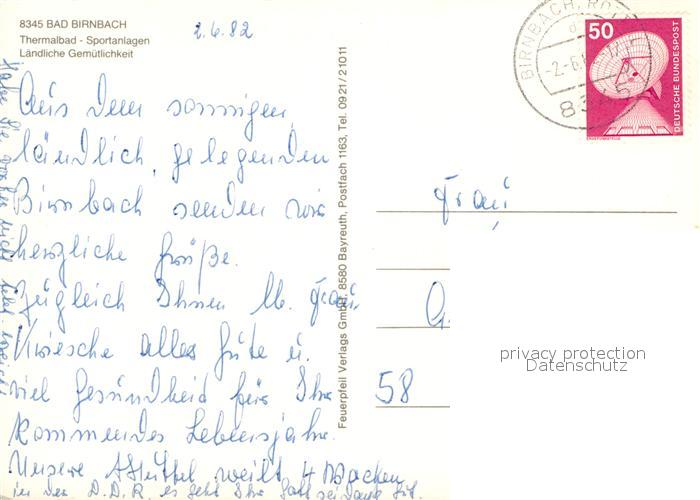 8345 BAD BIRNBACH
Thermalbad - Sportanlagen
Ländliche Gemütlichkeit
2.6.82
Aus dem sonnigen,
ländlich gelegenden
Birnbach senden wir
herzliche Grüße.
Zugleich Ihnen lb. Frau
Wünsche alles Gute u.
viel Gesundheit für Ihr
kommendes Lebensjahr.
Unsere weilt 4 Wochen
in der D.D.R. es geht Ihr Gott sei Dank gut.
Feuerpfeil Verlags GmbH, 8580 Bayreuth, Postfach 1163, Tel. 0921/21011
BIRNBACH, ROTT
-2.-6.
8345
50
DEUTSCHE BUNDESPOST
Frau
G.
58
privacy protection
Datenschutz